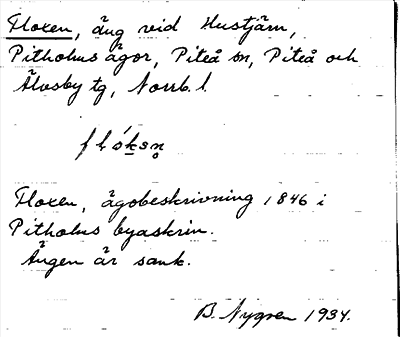 Floxen, äng vid Hustjärn,
Pitholms ägor, Piteå sn, Piteå och
Älvsby tg, Norrb. l.
flóksn̥
Floxen, ägobeskrivning 1846 i
Pitholms byaskrin.
Ängen är sank.
B. Nygren 1934.